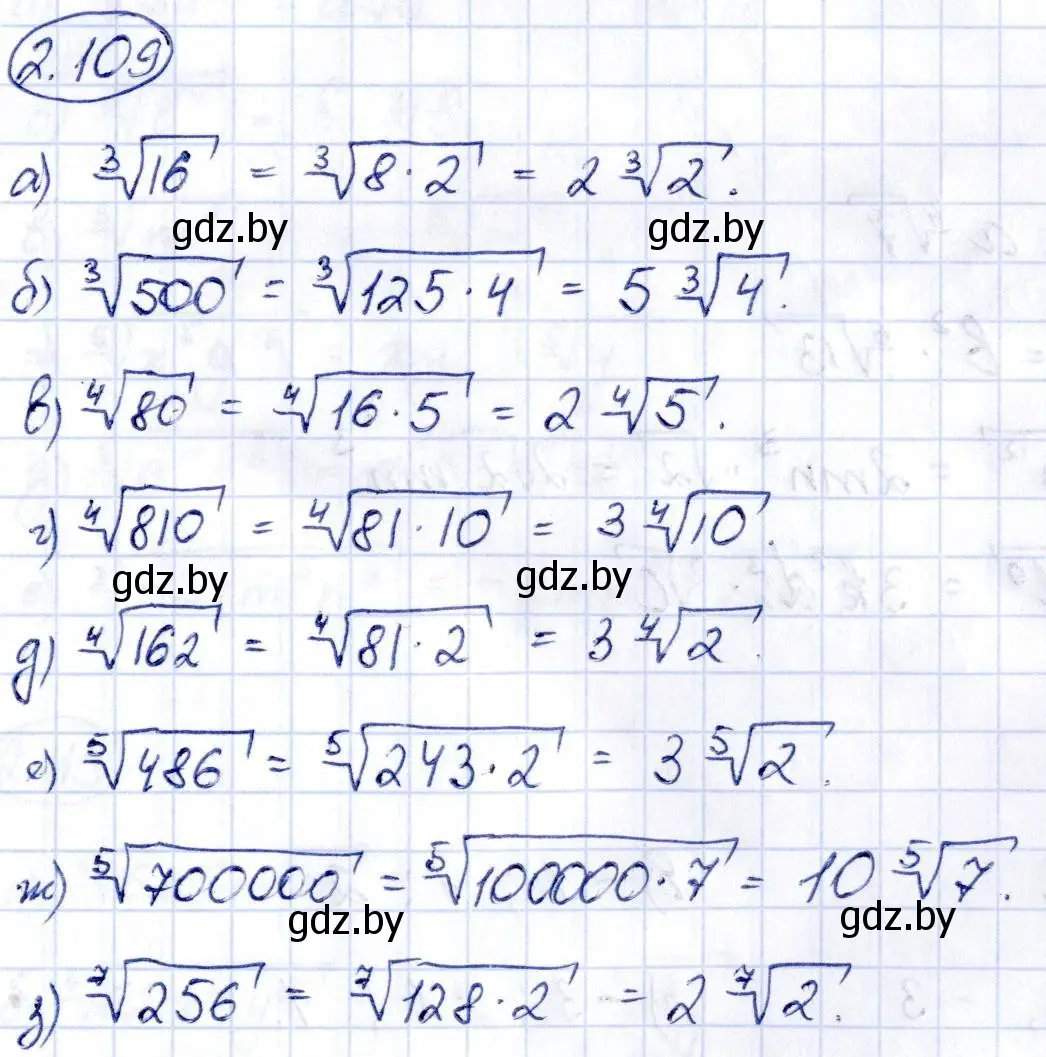 2.109
а) ∛16 = ∛8·2 = 2∛2.
gdz.by gdz.by
б) ∛500 = ∛125·4 = 5∛4.
в) ∜80 = ∜16·5 = 2∜5.
г) ∜810 = ∜81·10 = 3∜10.
gdz.by gdz.by
д) ∜162 = ∜81·2 = 3∜2.
е) ⁵√486 = ⁵√243·2 = 3⁵√2.
ж) ⁵√700000 = ⁵√100000·7 = 10⁵√7.
gdz.by gdz.by
з) ⁷√256 = ⁷√128·2 = 2⁷√2.